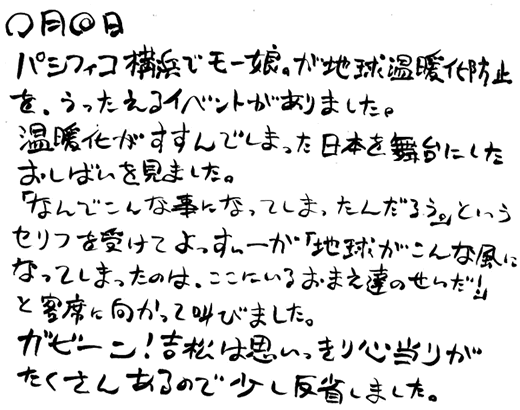 ○月◎日
パシフィコ横浜でモー娘。が地球温暖化防止
を、うったえるイベントがありました。
温暖化がすすんでしまった日本を舞台にした
おしばいを見ました。
「なんでこんな事になってしまったんだろう。」という
セリフを受けてよっすぃーが「地球がこんな風に
なってしまったのは、ここにいるおまえ達のせいだ!」
と客席に向かって叫びました。
ガビーン!吉松は思いっきり心当りが
たくさんあるので少し反省しました。